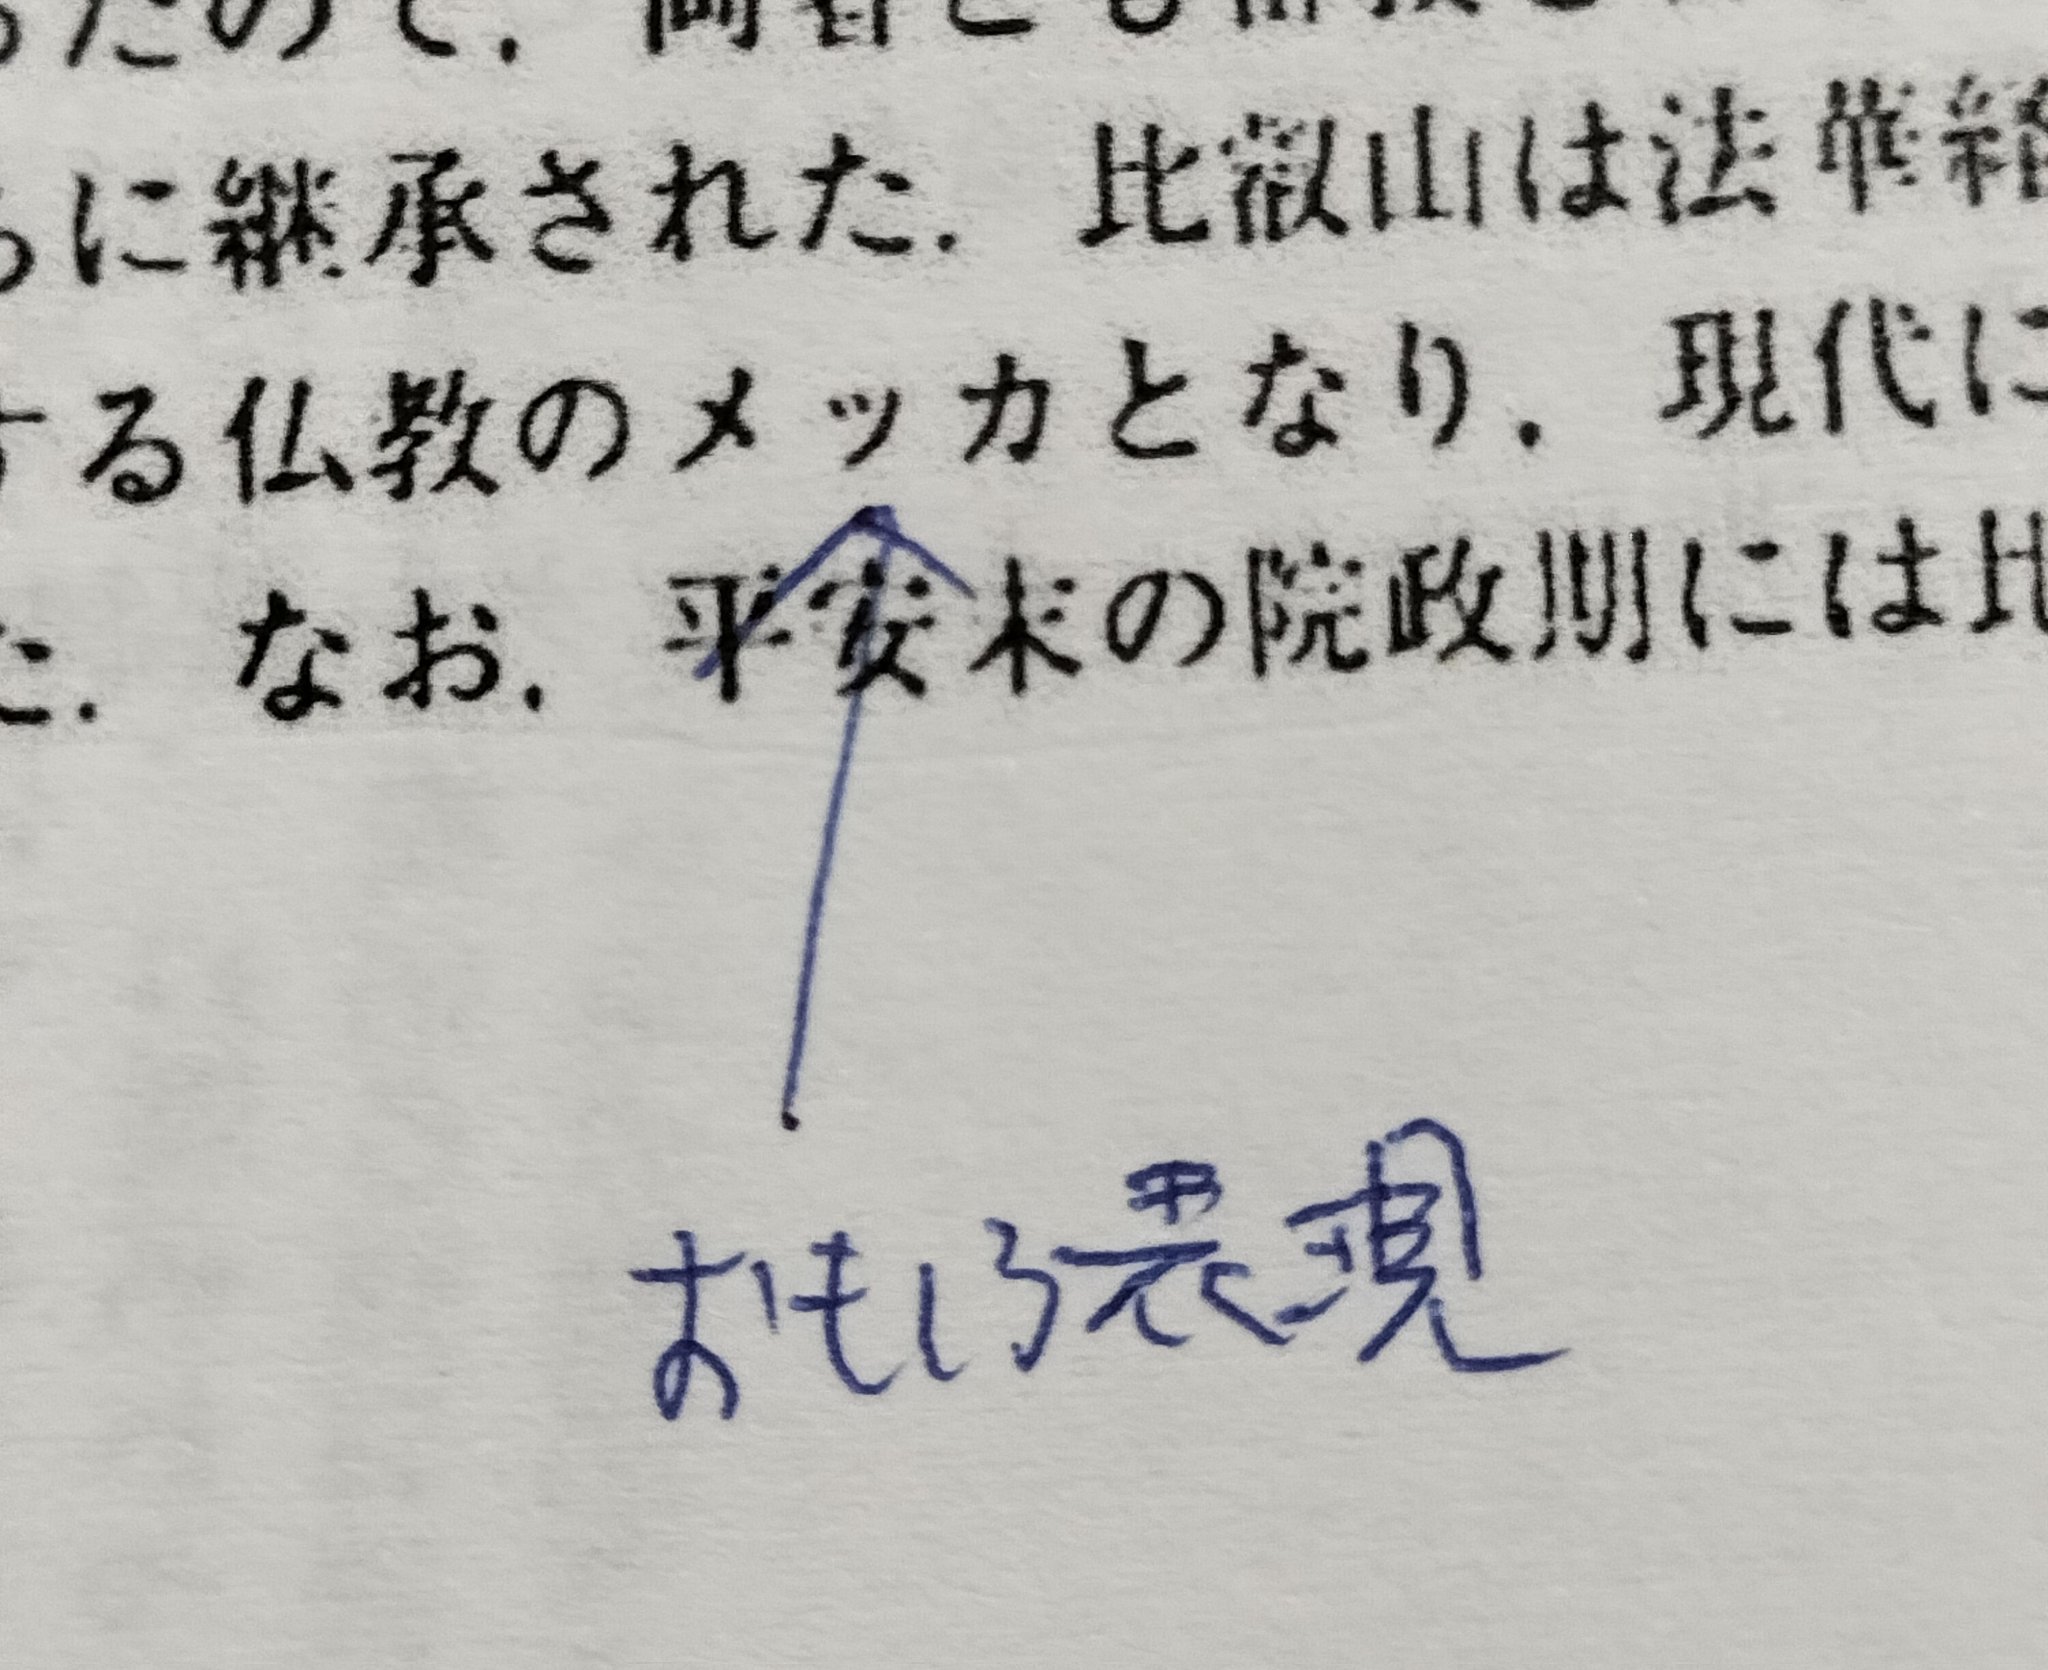 たので，両者とも
に継承された．比叡山は法華経
する仏教のメッカとなり，現代に
た．なお，平安末の院政期には比
おもしろ表現